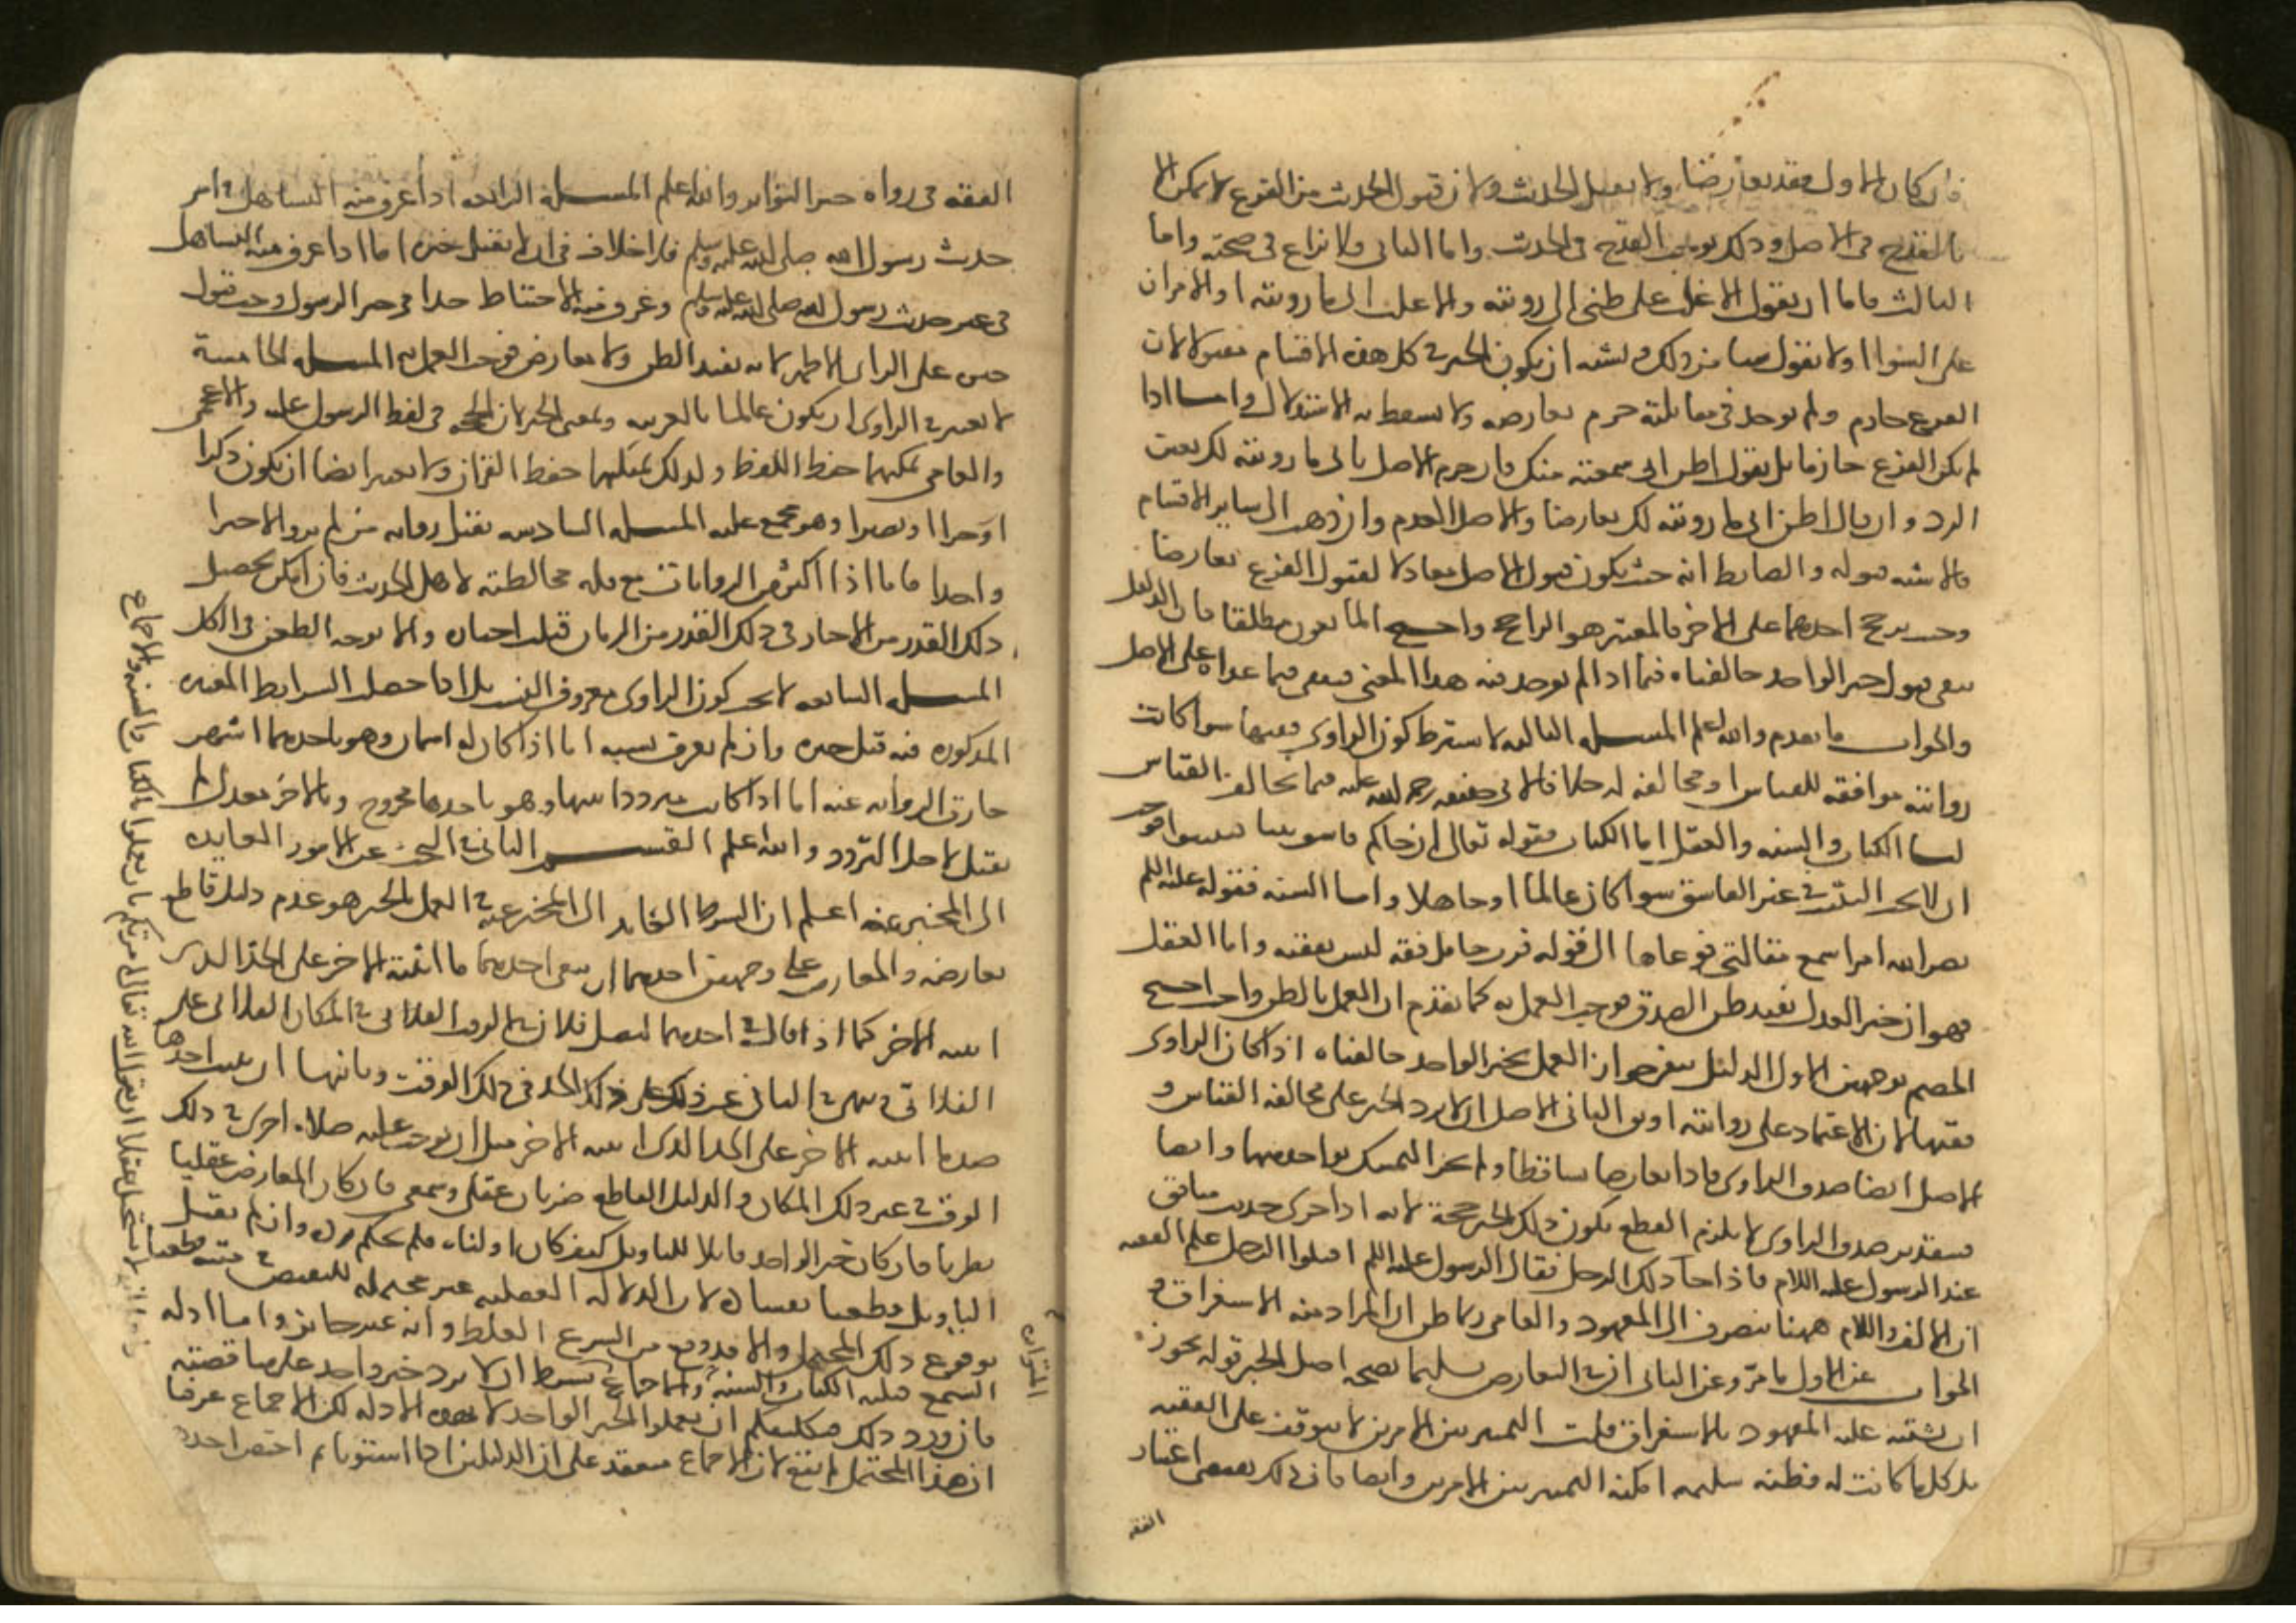 فان كان الاول فقد تعارضا ولا يقبل الحديث ولان قبول الحديث من الفرع لا يمكن الا
بالقدح في الاصل وذلك يوجب القدح في الحديث واما الثاني فلا نزاع في صحته واما
الثالث فاما ان يقول الاغلب على ظني اني رويته والاغلب اني ما رويته او الامران
على السوا او لا يقول شيا من ذلك ويشبه ان يكون الخبر في كل هذه الاقسام مقبولا لان
الفرع جازم ولم يوجد في مقابلته جزم يعارضه ولا يسقط به الاستدلال واما اذا
لم يكن الفرع جازما بل يقول اظن اني سمعته منك فان جزم الاصل باني ما رويته لك تعين
الرد وان قال اظن اني ما رويته لك تعارضا والاصل العدم وان ذهب الى ساير الاقسام
فالاشبه قبوله والضابط انه حيث يكون قبول الاصل معادلا لقبول الفرع تعارضا
وحيث يرجح احدهما على الاخر فالمعتبر هو الراجح واحتج المانعون مطلقا بان الدليل
ينفي قبول خبر الواحد خالفناه فيما اذا لم يوجد فيه هذا المعنى فيبقى فيما عداه على الاصل
والجواب ما تقدم والله اعلم المسلة الثالثة لا يشترط كون الراوي فقيها سوا كانت
روايته موافقة للقياس او مخالفة له خلافا لابي حنيفة رحمة الله عليه فيما يخالف القياس
لنا الكتاب والسنة والعقل اما الكتاب فقوله تعالى ان جاكم فاسق بنبا فتبينوا فوجب
ان لا يجب التثبت في غير الفاسق سوا كان عالما او جاهلا واما السنة فقوله عليه السلم
نضر الله امرا سمع مقالتي فوعاها الى قوله فرب حامل فقه ليس بفقيه واما العقل
فهو ان خبر العدل يفيد ظن الصدق فوجب العمل به كما تقدم ان العمل بالظن واجب احتج
الخصم بوجهين الاول الدليل ينفي جواز العمل بخبر الواحد خالفناه اذا كان الراوي
فقيها لان الاعتماد على روايته اوثق الثاني الاصل ان لا يرد الخبر على مخالفة القياس و
الاصل ايضا صدق الراوي فاذا تعارضا تساقطا ولم يجز التمسك بواحد منهما وايضا
فبتقدير صدق الراوي لا يلزم القطع بكون ذلك الخبر حجة لانه اذا جرى حديث سابق
عند الرسول عليه السلام فاذا جا ذلك الرجل فقال الرسول عليه السلم اقتلوا الرجل علم الفقيه
ان الالف واللام ههنا ينصرف الى المعهود والعامي ربما ظن ان المراد منه الاستغراق و
الجواب عن الاول ما مر وعن الثاني ان في التعارض تسليما بصحة اصل الخبر قوله يجوز
ان يشتبه عليه المعهود بالاستغراق قلت التمييز بين الامرين لا يتوقف على الفقه
بل كل ما كانت له فطنة سليمة امكنه التمييز بين الامرين وايضا فان ذلك يقتضي اعتبار
الفقه
الفقه في رواة خبر التواتر والله اعلم المسلة الرابعة اذا عرف منه التساهل في امر
حديث رسول الله صلى الله عليه وسلم فلا خلاف في ان لا يقبل خبره اما اذا عرف منه التساهل
في غير حديث رسول الله صلى الله عليه وسلم وعرف منه الاحتياط جدا في خبر الرسول وجب قبول
خبره على الراي الاظهر لانه يفيد الظن ولا معارض فوجب العمل به المسلة الخامسة
لا يعتبر في الراوي ان يكون عالما بالعربية وبمعنى الخبر لان الحجة في لفظ الرسول عليه والاعجمي
والعامي يمكنهما حفظ اللفظ وكذلك يمكنهما حفظ القران ولا يعتبر ايضا ان يكون ذكرا
او حرا او بصيرا وهو مجمع عليه المسلة السادسة تقبل رواية من لم يرو الا خبرا
واحدا فاما اذا اكثر من الروايات مع قلة مخالطته لاهل الحديث فان امكن تحصيل
ذلك القدر من الاخبار في ذلك القدر من الزمان قبلت اخباره والا توجه الطعن في الكل
المسلة السابعة لا يجب كون الراوي معروف النسب بل اذا حصلت الشرايط المعتبرة
المذكورة فيه قبل خبره وان لم يعرف نسبه اما اذا كان له اسمان وهو باحدهما اشهر
جازت الرواية عنه اما اذا كان مترددا بينهما وهو باحدهما مجروح وبالاخر معدل لم
يقبل لاجل التردد والله اعلم القسم الثاني في البحث عن الامور العايدة
الى المخبر عنه اعلم ان الشرط العايد الى المخبر عنه في العمل بالخبر هو عدم دليل قاطع
يعارضه والمعارض على وجهين احدهما ان ينفي احدهما ما اثبته الاخر على الحد الذي
اثبته الاخر كما اذا قال في احدهما ليصل فلان في الوقت الفلاني في المكان الفلاني على
الفلاني وينهى في الثاني عن ذلك على ذلك الحد في ذلك الوقت وثانيهما ان يثبت احدهما
ضد ما اثبته الاخر على الحد الذي اثبته الاخر مثل ان يوجب عليه صلاة اخرى في ذلك
الوقت في غير ذلك المكان والدليل القاطع ضربان عقلي وسمعي فان كان المعارض عقليا
نظرنا فان كان خبر الواحد قابلا للتاويل كيف كان اولناه فلم نحكم برده وان لم يقبل
التاويل قطعنا بفساده لان الدلالة العقلية غير محتملة للنقيض
بوقوع ذلك المحتمل والا فقد وقع من الشرع الغلط وانه غير جايز واما ادلة
السمع فثلثة الكتاب والسنة والاجماع
فان ورود ذلك لان هذه الادلة لكن الاجماع عرفنا
ان هذا المحتمل لم يقع لان الاجماع منعقد على ان الدليلين اذا استويا ثم اختص احدهما